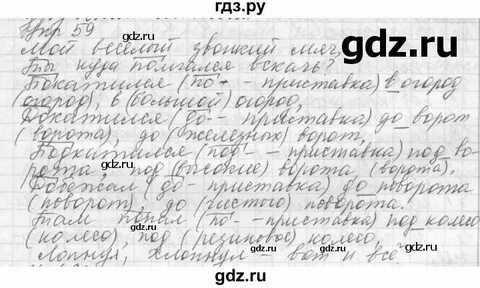 гдз.ру
Упр 59
Мой весёлый звонкий мяч,
Ты куда помчался вскачь?
Покатился (по- - приставка) в огород
(огород), в (большой) огород,
Докатился (до- - приставка) до ворот
(ворота), до (железных) ворот,
Подкатился (под- - приставка) под во-
рота, под (высокие) ворота, (ворота),
Добежал (до- - приставка) до поворота
(поворот), до (чистого) поворота.
Там попал (по- - приставка) под колесо
(колесо), под (резиновое) колесо,
Лопнул, хлопнул – вот и всё
gdz.ru
gdz.ru
gdz.ru
gdz.ru
gdz.ru
gdz.ru
gdz.ru